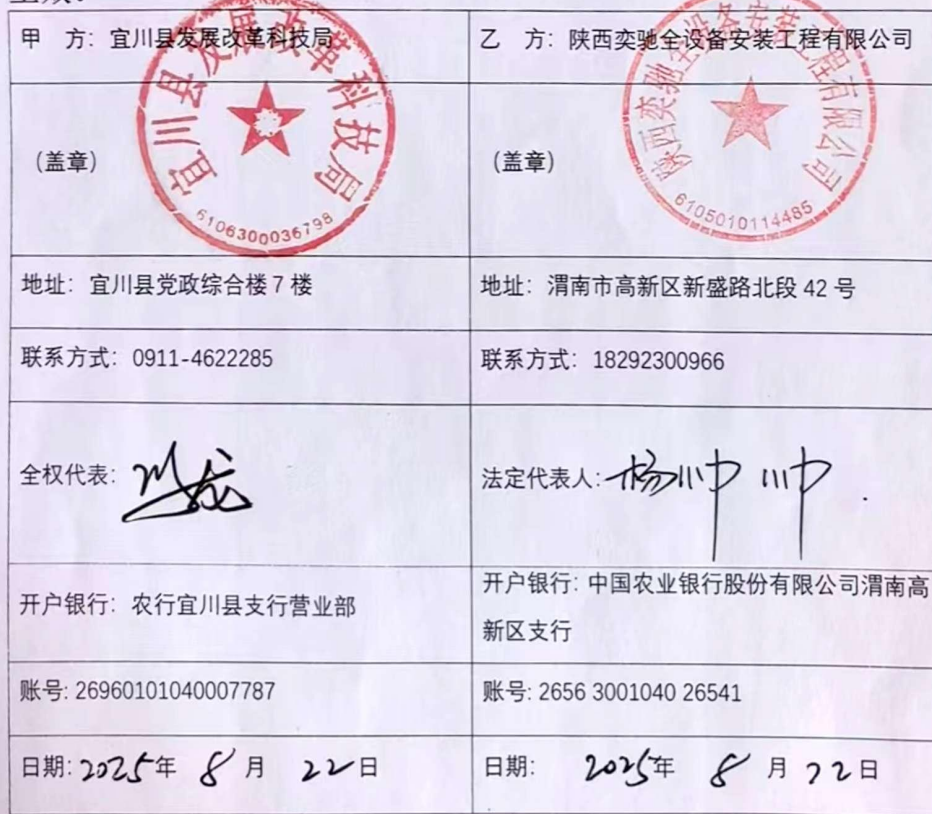 甲　方：宜川县发展改革科技局
乙　方：陕西奕驰全设备安装工程有限公司
宜川县发展改革科技局
6106300036798
陕西奕驰全设备安装工程有限公司
6105010114485
（盖章）
（盖章）
地址：宜川县党政综合楼7楼
地址：渭南市高新区新盛路北段 42 号
联系方式：0911-4622285
联系方式：18292300966
全权代表：
法定代表人：杨帅帅
开户银行：农行宜川县支行营业部
开户银行：中国农业银行股份有限公司渭南高
新区支行
账号: 26960101040007787
账号: 2656 3001040 26541
日期: 2025年 8 月 22日
日期： 2025年 8 月 22日